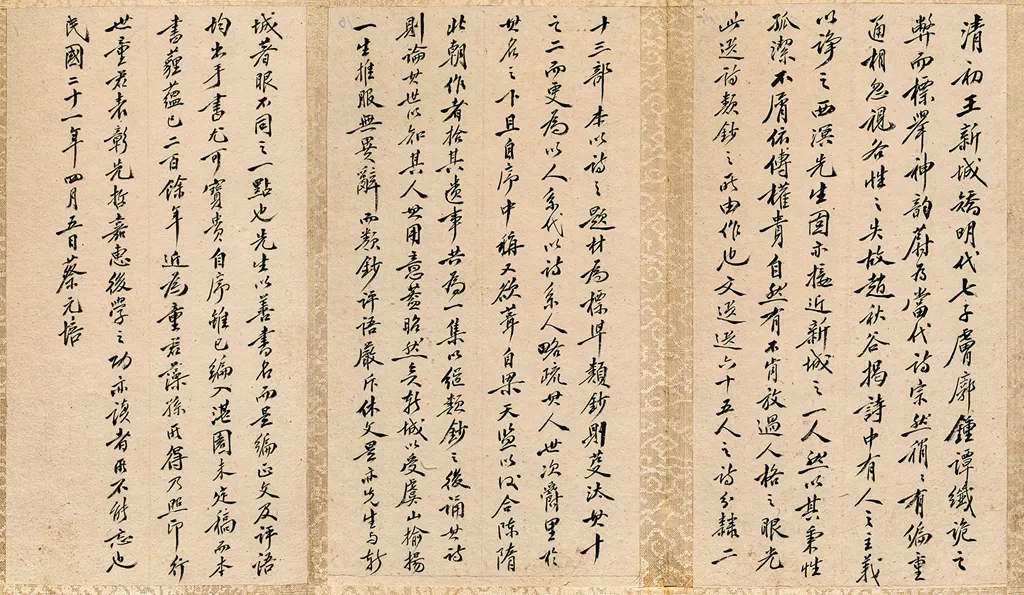 清初王新城矯明代七子膚廓鍾譚纖詭之
弊而標舉神韵蔚為當代詩宗然稍稍有偏重
通相忽視各性之失故趙秋谷揭詩中有人之主義
以諍之西溟先生固亦接近新城之一人然以其秉性
孤潔不屑依傅權貴自然有不肯放過人格之眼光
此選詩類鈔之所由作也文選選六十五人之詩分隸二
十三部本以詩之題材為標準類鈔則芟汰其十
之二而更為以人系代以詩系人略疏其人世次爵里於
其名之下且自序中稱又欲葺自梁天監以後合陳隋
北朝作者拾其遺事共為一集以繼類鈔之後誦其詩
則論其世以知其人其用意蓋昭然矣新城以受虞山揄揚
一生推服無異辭而類鈔評語嚴斥休文是亦先生與新
城著眼不同之一點也先生以善書名而是編正文及評語
均出手書尤可寶貴自序雖已編入湛園未定稿而本
書蘊蘊已二百餘年近為重君藻孫所得乃照印行
世童君表彰先哲嘉惠後學之功亦讀者所不能忘也
民國二十一年四月五日蔡元培